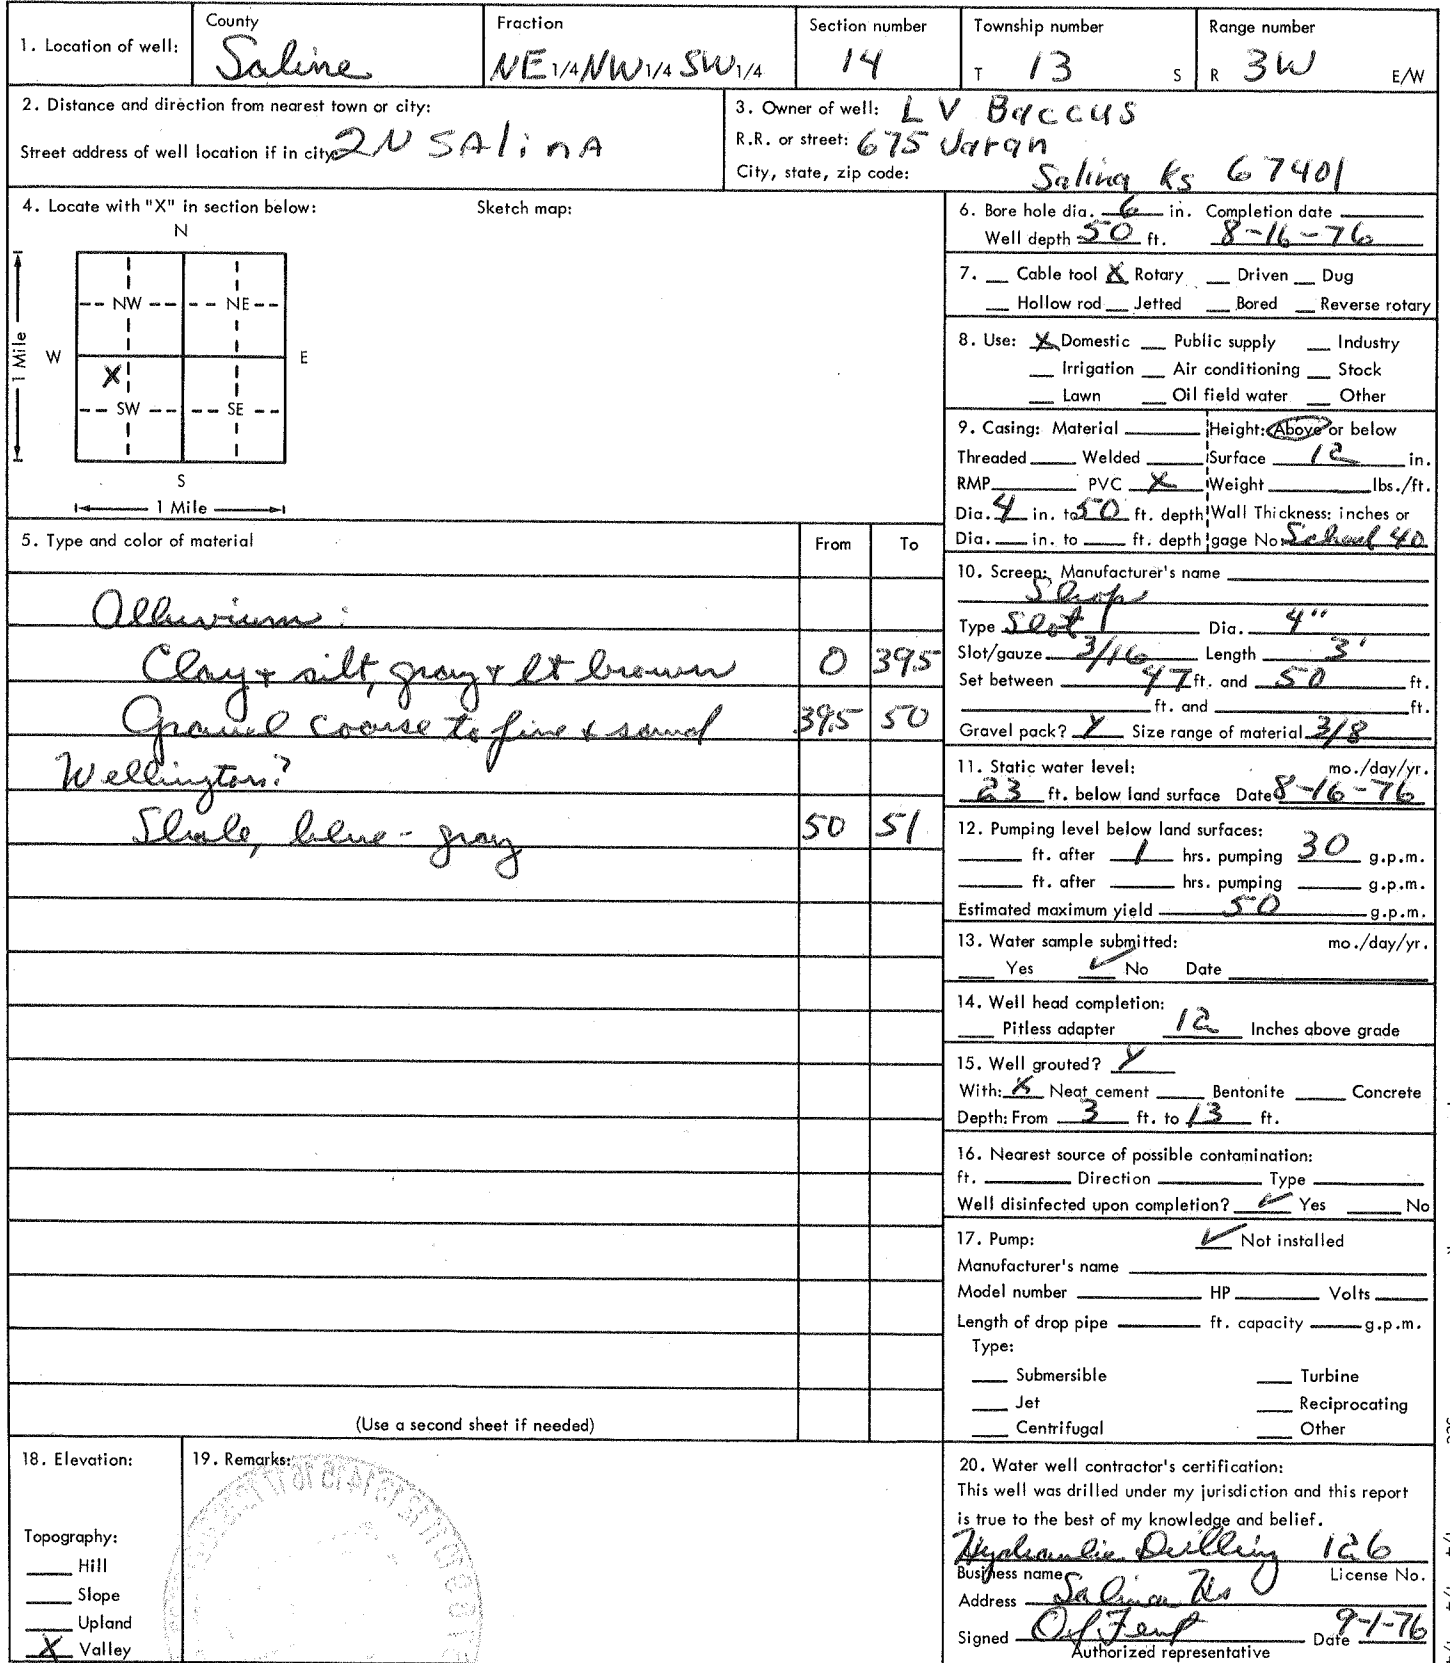 1. Location of well:
County
Saline
Fraction
NE 1/4 NW 1/4 SW 1/4
Section number
14
Township number
T 13 S
Range number
R 3W E/W
2. Distance and direction from nearest town or city:
Street address of well location if in city: 2N SAlinA
3. Owner of well: L V Baccus
R.R. or street: 675 Varan
City, state, zip code: Salina Ks 67401
4. Locate with "X" in section below:
Sketch map:
N
NW NE
W E
1 Mile
X
SW SE
S
1 Mile
6. Bore hole dia. 6 in. Completion date
Well depth 50 ft. 8-16-76
7. Cable tool X Rotary Driven Dug
Hollow rod Jetted Bored Reverse rotary
8. Use: X Domestic Public supply Industry
Irrigation Air conditioning Stock
Lawn Oil field water Other
9. Casing: Material Height: Above or below
Threaded Welded Surface 12 in.
RMP PVC X Weight lbs./ft.
Dia. 4 in. to 50 ft. depth Wall Thickness: inches or
Dia. in. to ft. depth gage No. 40
5. Type and color of material From To
Alluvium:
Clay + silt, gray + lt brown 0 39.5
Gravel coarse to fine + sand 39.5 50
Wellington?
Shale, blue-gray 50 51
(Use a second sheet if needed)
10. Screen: Manufacturer's name
Shop
Type Slot Dia. 4"
Slot/gauze 3/16 Length 3'
Set between 47 ft. and 50 ft.
ft. and ft.
Gravel pack? Y Size range of material 3/8
11. Static water level: mo./day/yr.
23 ft. below land surface Date 8-16-76
12. Pumping level below land surfaces:
ft. after 1 hrs. pumping 30 g.p.m.
ft. after hrs. pumping g.p.m.
Estimated maximum yield 50 g.p.m.
13. Water sample submitted: mo./day/yr.
Yes ✓ No Date
14. Well head completion:
Pitless adapter 12 Inches above grade
15. Well grouted? Y
With: X Neat cement Bentonite Concrete
Depth: From 3 ft. to 13 ft.
16. Nearest source of possible contamination:
ft. Direction Type
Well disinfected upon completion? ✓ Yes No
17. Pump: ✓ Not installed
Manufacturer's name
Model number HP Volts
Length of drop pipe ft. capacity g.p.m.
Type:
Submersible Turbine
Jet Reciprocating
Centrifugal Other
18. Elevation:
Topography:
Hill
Slope
Upland
X Valley
19. Remarks:
20. Water well contractor's certification:
This well was drilled under my jurisdiction and this report
is true to the best of my knowledge and belief.
Hydraulic Drilling 126
Business name License No.
Address Salina Ks
Signed Date 9-1-76
Authorized representative